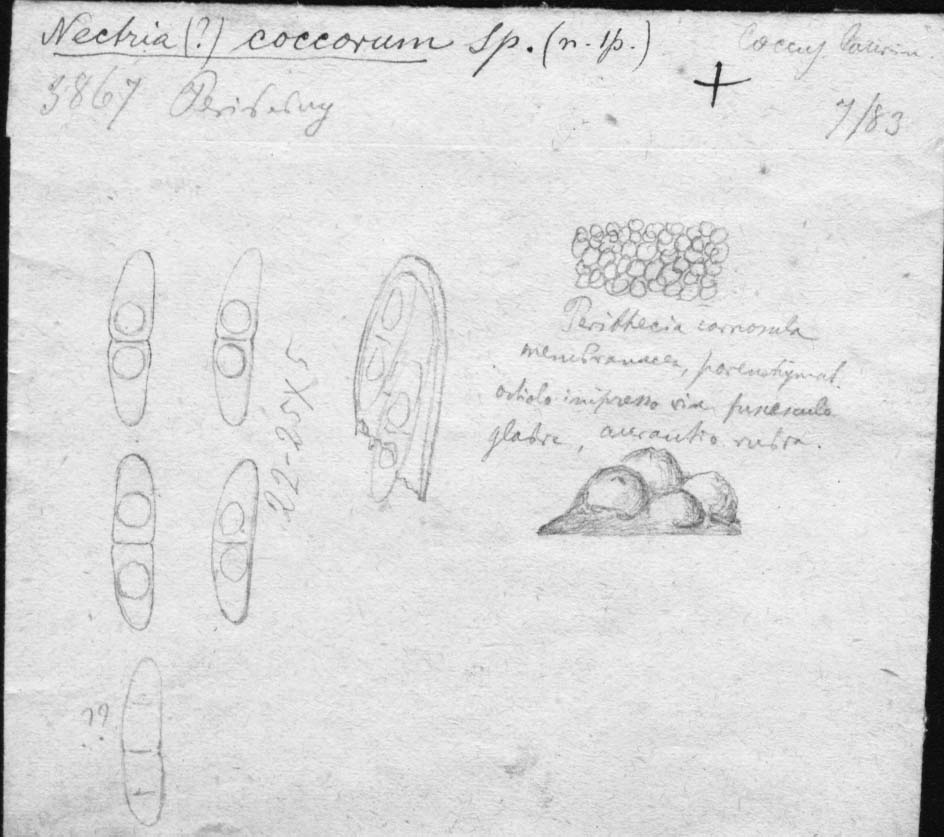 Nectria (?) coccorum Sp. (n. sp.)
Coccus
3867
7/83
22-25 x 5
Perithecia carnosula
membranacea, parenchymat.
ostiolo impresso vix fuscescente
glabra, aurantio rubra.
??